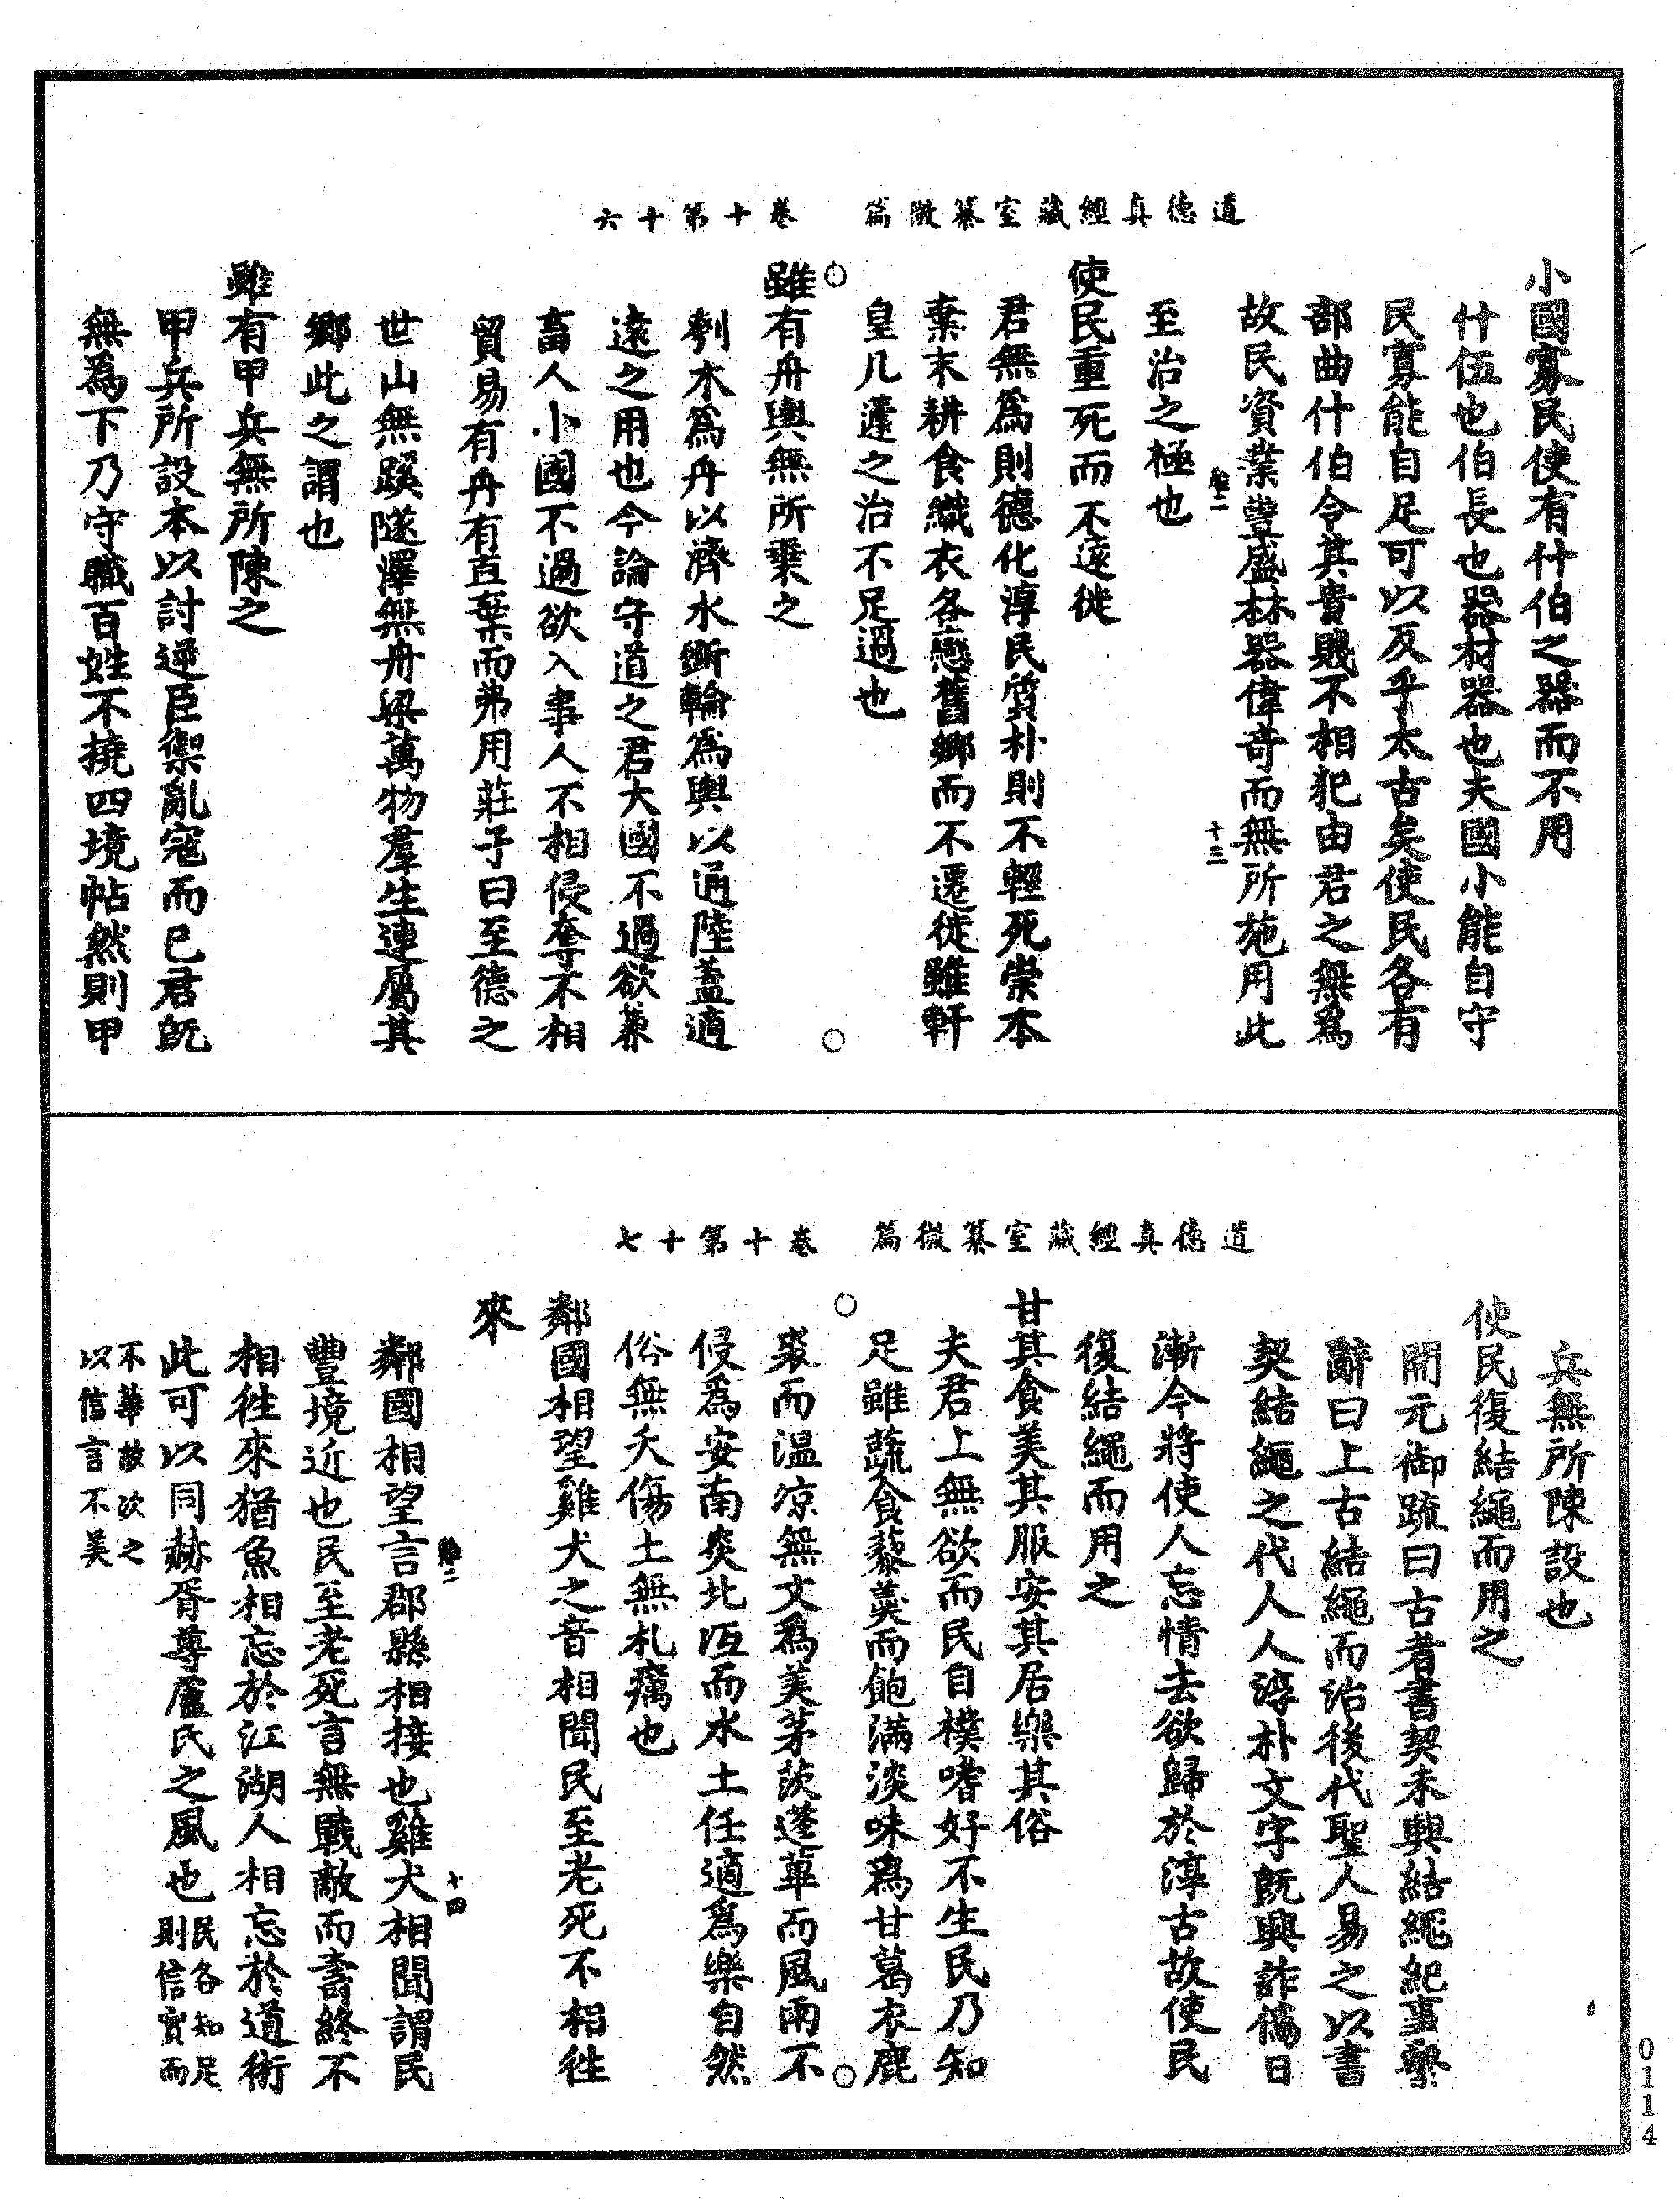 道德真經藏室纂微篇　卷十第十六
小國寡民使有什伯之器而不用
什伍也伯長也器材器也夫國小能自守
民寡能自足可以反乎太古矣使民各有
部曲什伯令其貴賤不相犯由君之無爲
故民資業豐盛林器偉奇而無所施用此
十三
至治之極也
使民重死而不遠徙
君無爲則德化淳民質朴則不輕死崇本
棄末耕食織衣各戀舊鄉而不遷徙雖軒
皇几蘧之治不足過也
雖有舟輿無所乘之
刳木爲舟以濟水斵輪爲輿以通陸蓋適
遠之用也今論守道之君大國不過欲兼
畜人小國不過欲入事人不相侵奪不相
貿易有舟有車棄而弗用莊子曰至德之
世山無蹊隧澤無舟梁萬物羣生連屬其
鄉此之謂也
雖有甲兵無所陳之
甲兵所設本以討逆臣禦亂寇而已君既
無爲下乃守職百姓不撓四境帖然則甲
道德真經藏室纂微篇　卷十第十七
兵無所陳設也
使民復結繩而用之
開元御疏曰古者書契未興結繩紀事繫
辭曰上古結繩而治後代聖人易之以書
契結繩之代人人淳朴文字既興詐僞日
漸今將使人忘情去欲歸於淳古故使民
復結繩而用之
甘其食美其服安其居樂其俗
夫君上無欲而民自樸嗜好不生民乃知
足雖蔬食藜羹而飽滿淡味爲甘葛衣鹿
裘而温凉無文爲美茅茨蓬蓽而風雨不
侵爲安南炎北沍而水土任適爲樂自然
俗無夭傷土無札癘也
鄰國相望雞犬之音相聞民至老死不相往
來
十四
鄰國相望言郡縣相接也雞犬相聞謂民
豐境近也民至老死言無戰敵而壽終不
相往來猶魚相忘於江湖人相忘於道術
此可以同赫胥尊盧氏之風也民各知足
則信實而
不華故次之
以信言不美
0114